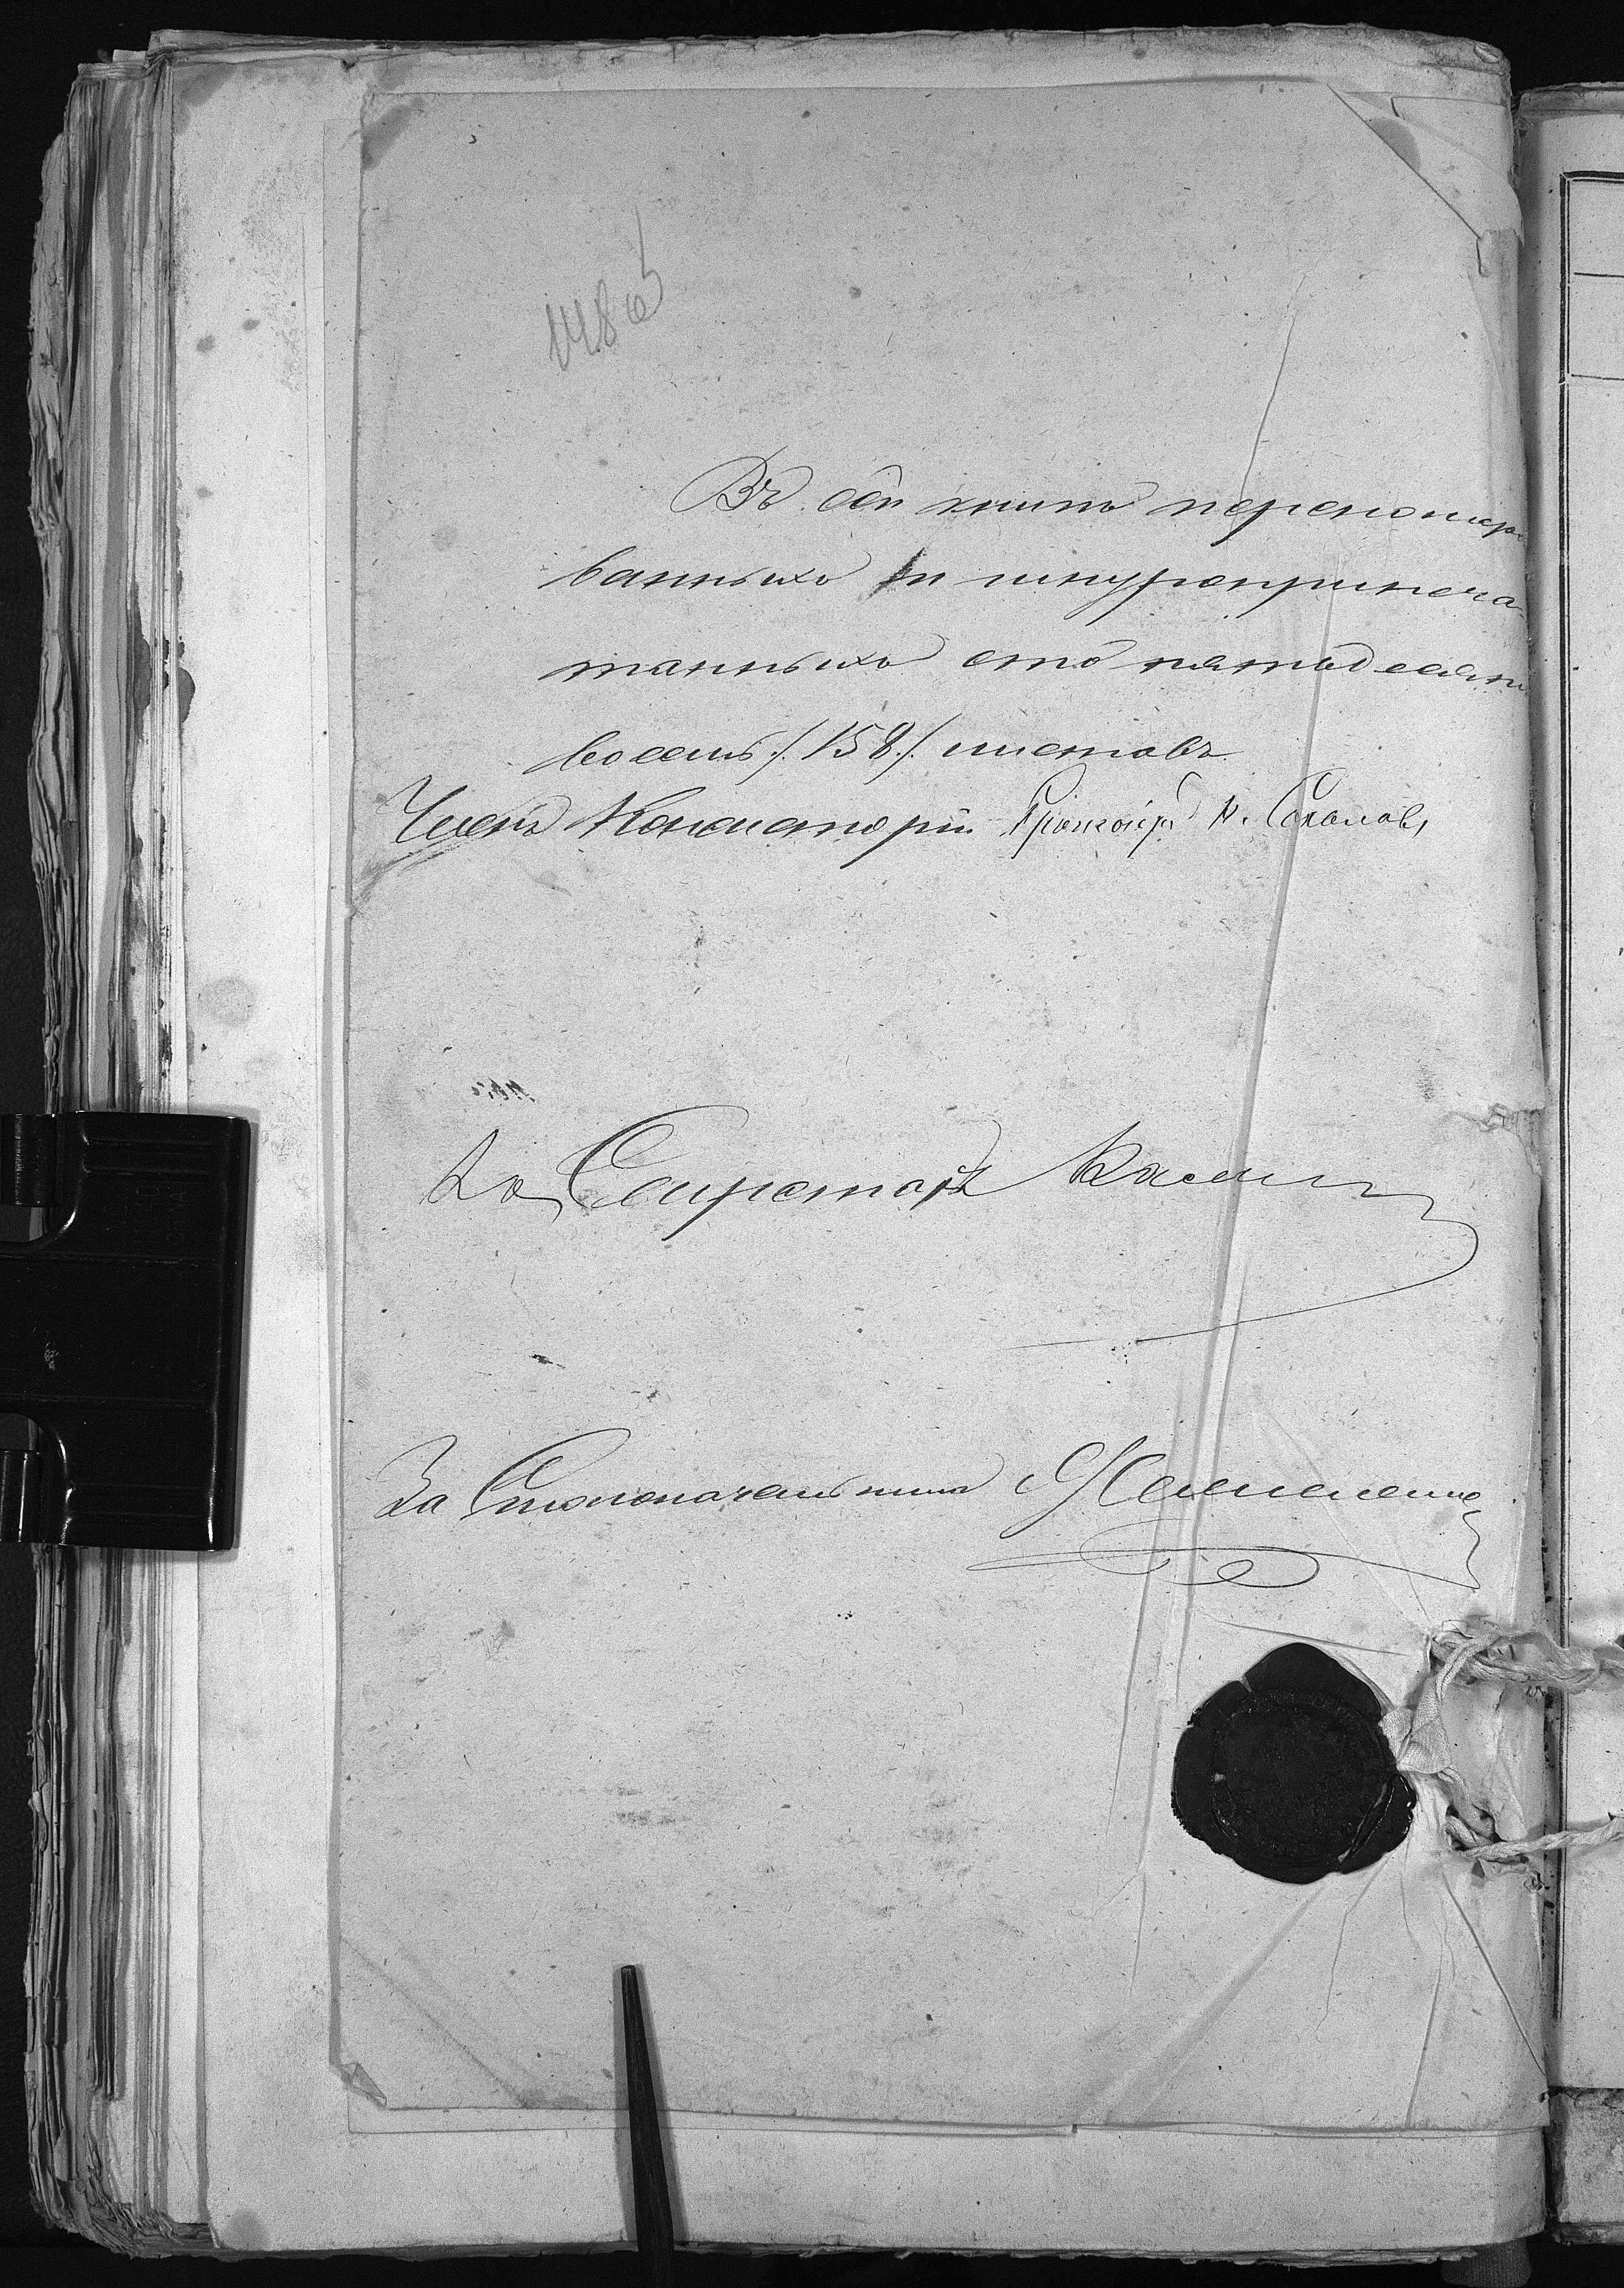 Въ сей книгѣ перенумеро
ванныхъ и шнуроприпеча-
танныхъ сто пятьдесятъ
восемь /.158./ листовъ.
Членъ Консисторіи Протоіерей Н. Соколовъ
За Секретаря
За Столоначальника